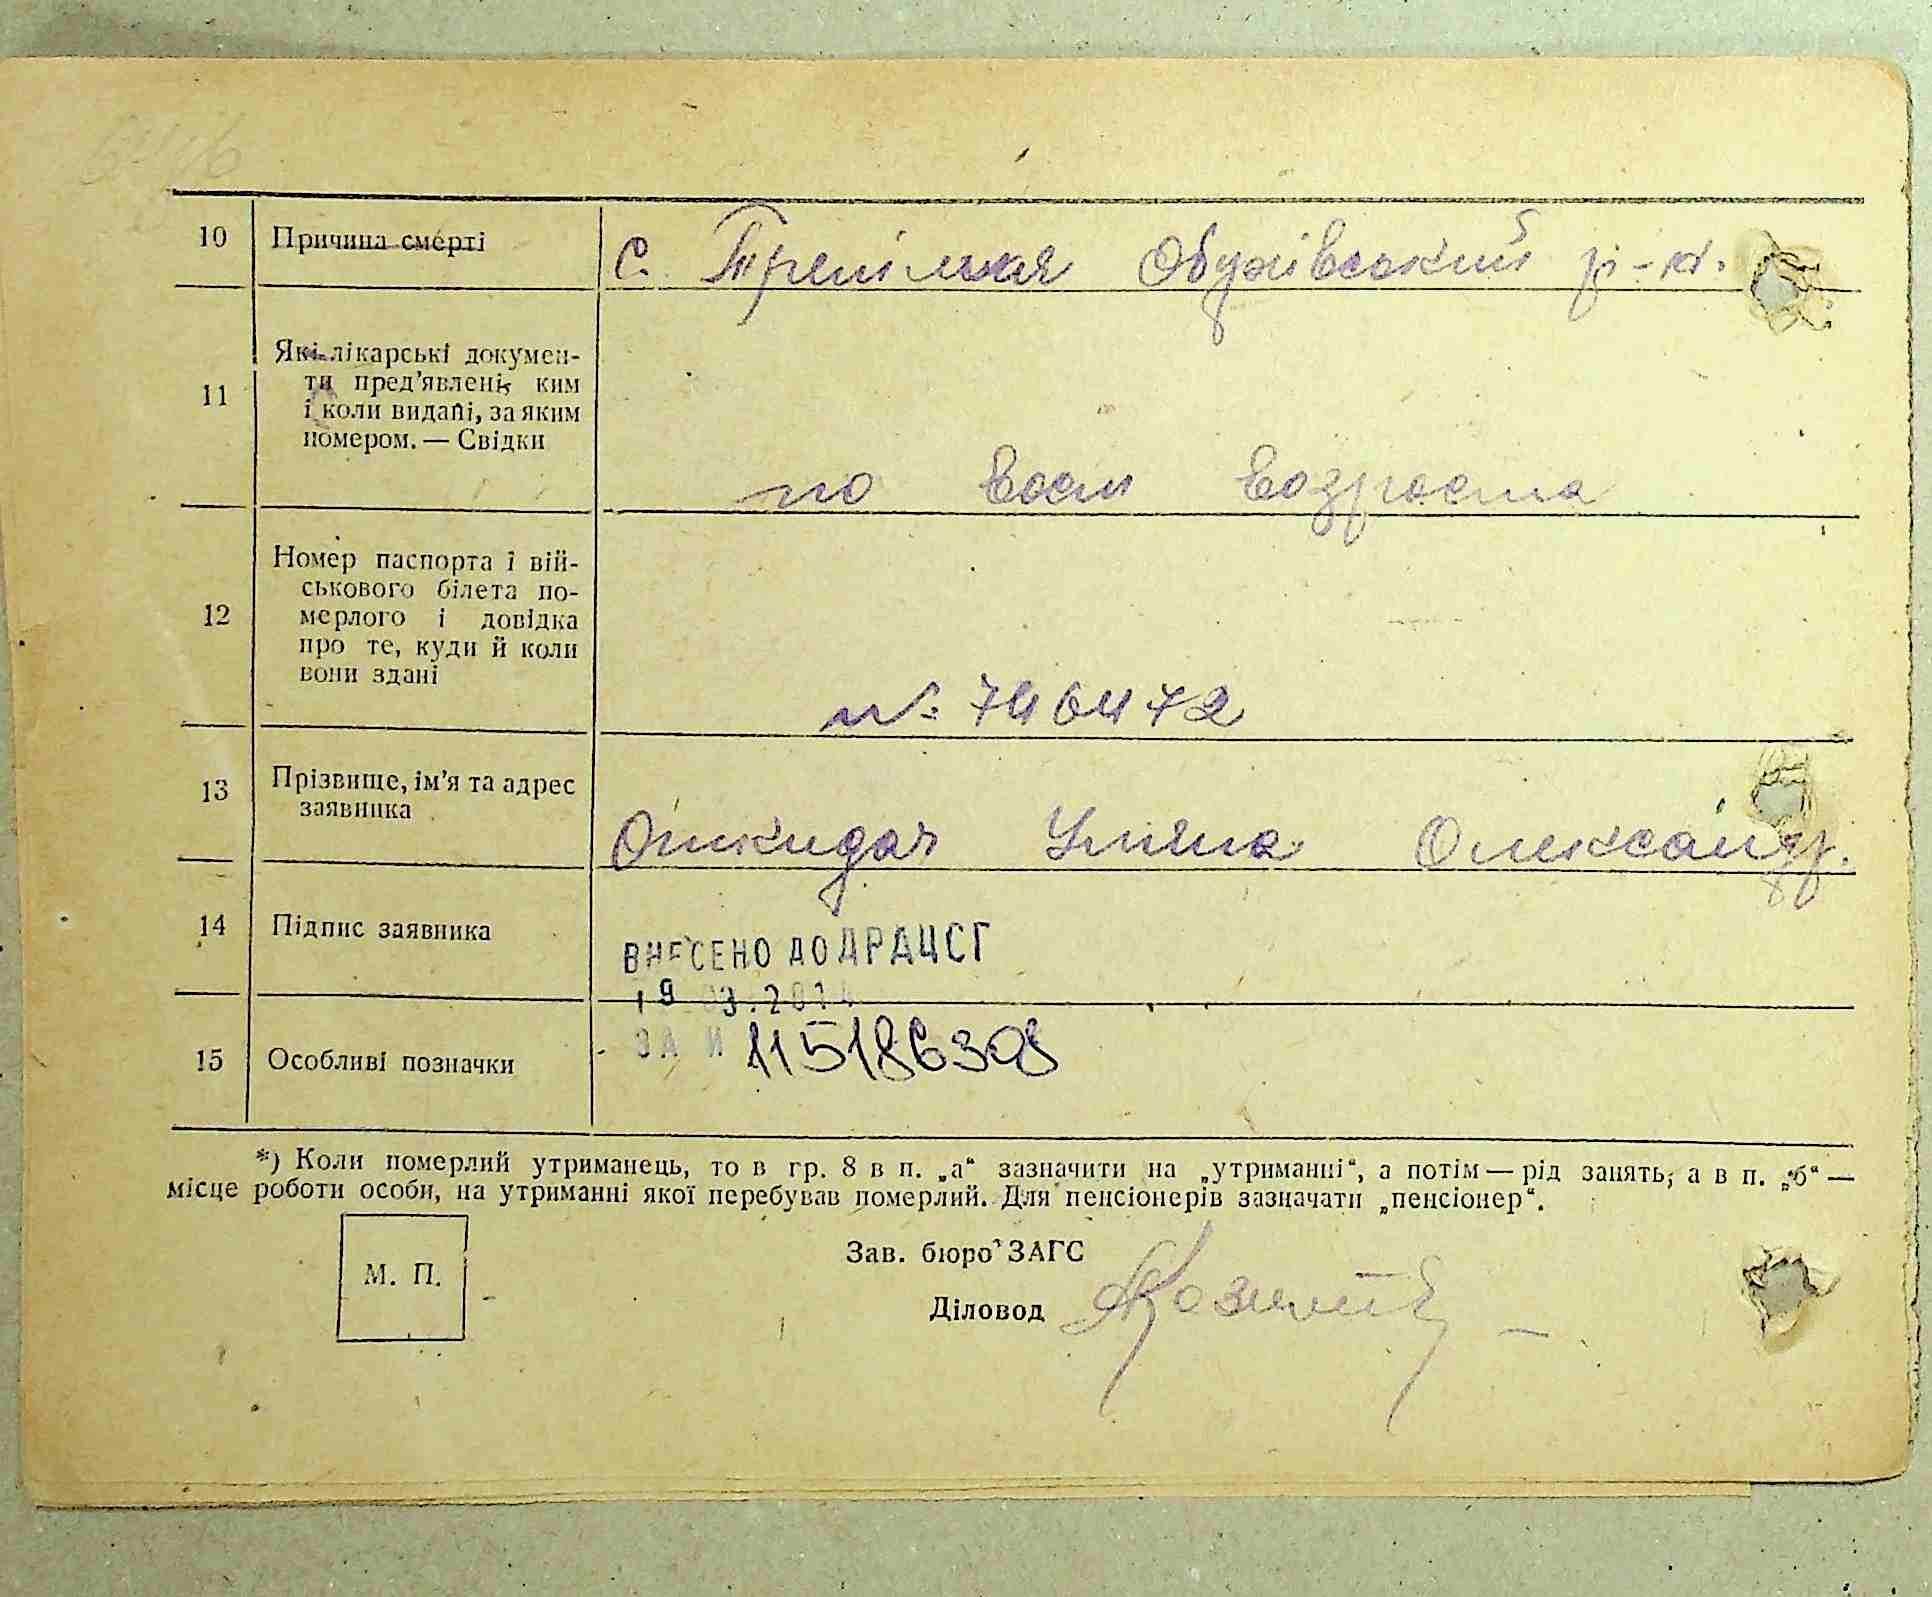 10 Причина смерті с. Трепілля Обухівський р-н.
11 Які лікарські докумен-
ти пред'явлені, ким
і коли видані, за яким
номером. — Свідки
по возраста
12 Номер паспорта і вій-
ськового білета по-
мерлого і довідка
про те, куди й коли
вони здані
№: 746472
13 Прізвище, ім'я та адрес
заявника
Откидач Уляна Олександр.
14 Підпис заявника
ВНЕСЕНО ДО ДРАЦСГ
19 03.201
15 Особливі позначки ЗА № 11518630
*) Коли померлий утриманець, то в гр. 8 в п. „а“ зазначити на „утриманні“, а потім — рід занять; а в п. „б“ —
місце роботи особи, на утриманні якої перебував померлий. Для пенсіонерів зазначати „пенсіонер“.
М. П.
Зав. бюро ЗАГС
Діловод